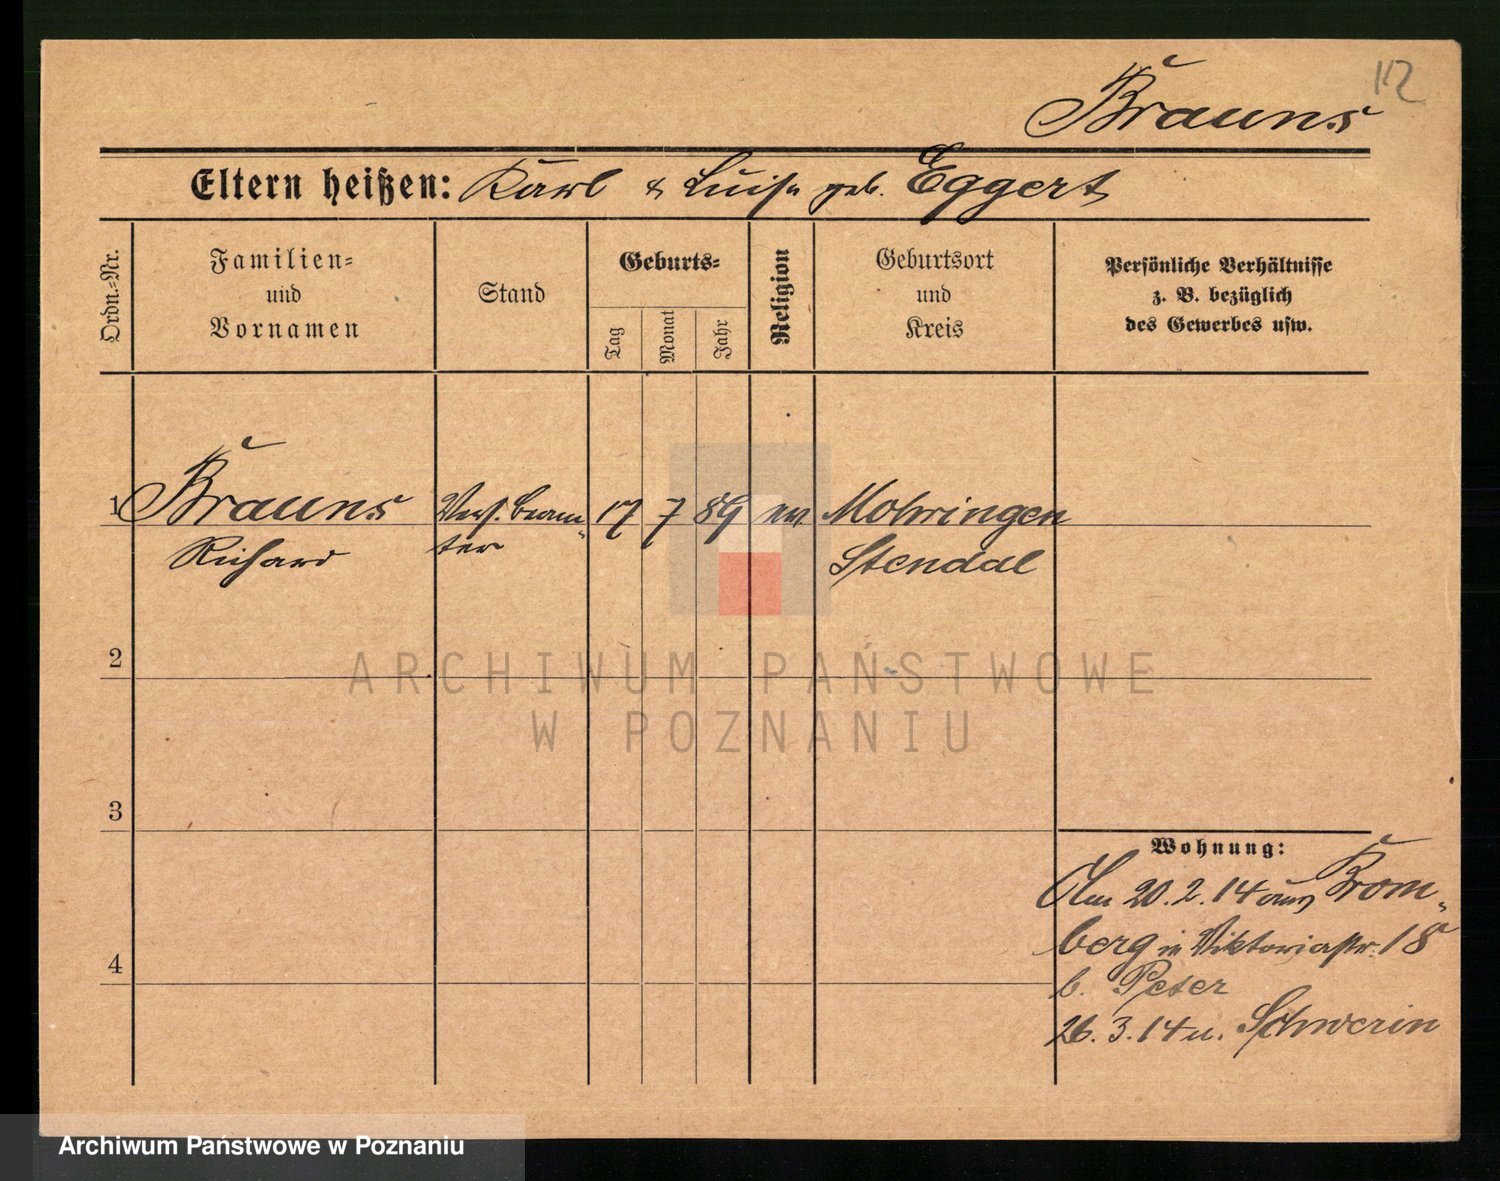 112
Brauns
Eltern heißen: Karl & Luise geb. Eggert
Ordn.-Nr.
Familien-
und
Vornamen
Stand
Geburts-
Tag
Monat
Jahr
Religion
Geburtsort
und
Kreis
Persönliche Verhältnisse
z. B. bezüglich
des Gewerbes usw.
1 Brauns Vers. beam- 17 7 89 ev. Mohringen
Richard ter Stendal
2
3
4
Wohnung:
Am 20.2.14 aus Brom-
berg in Viktoriastr. 18
b. Peter
26.3.14 n. Schwerin
ARCHIWUM PAŃSTWOWE
W POZNANIU
Archiwum Państwowe w Poznaniu